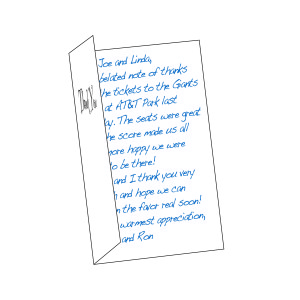 Joe and Linda,
belated note of thanks
the tickets to the Giants
at AT&T Park last
The seats were great
the score made us all
more happy we were
to be there!
and I thank you very
and hope we can
the favor real soon!
warmest appreciation,
and Ron